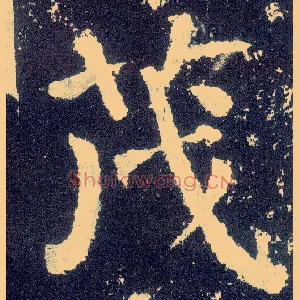 茂
Shufawang.CN